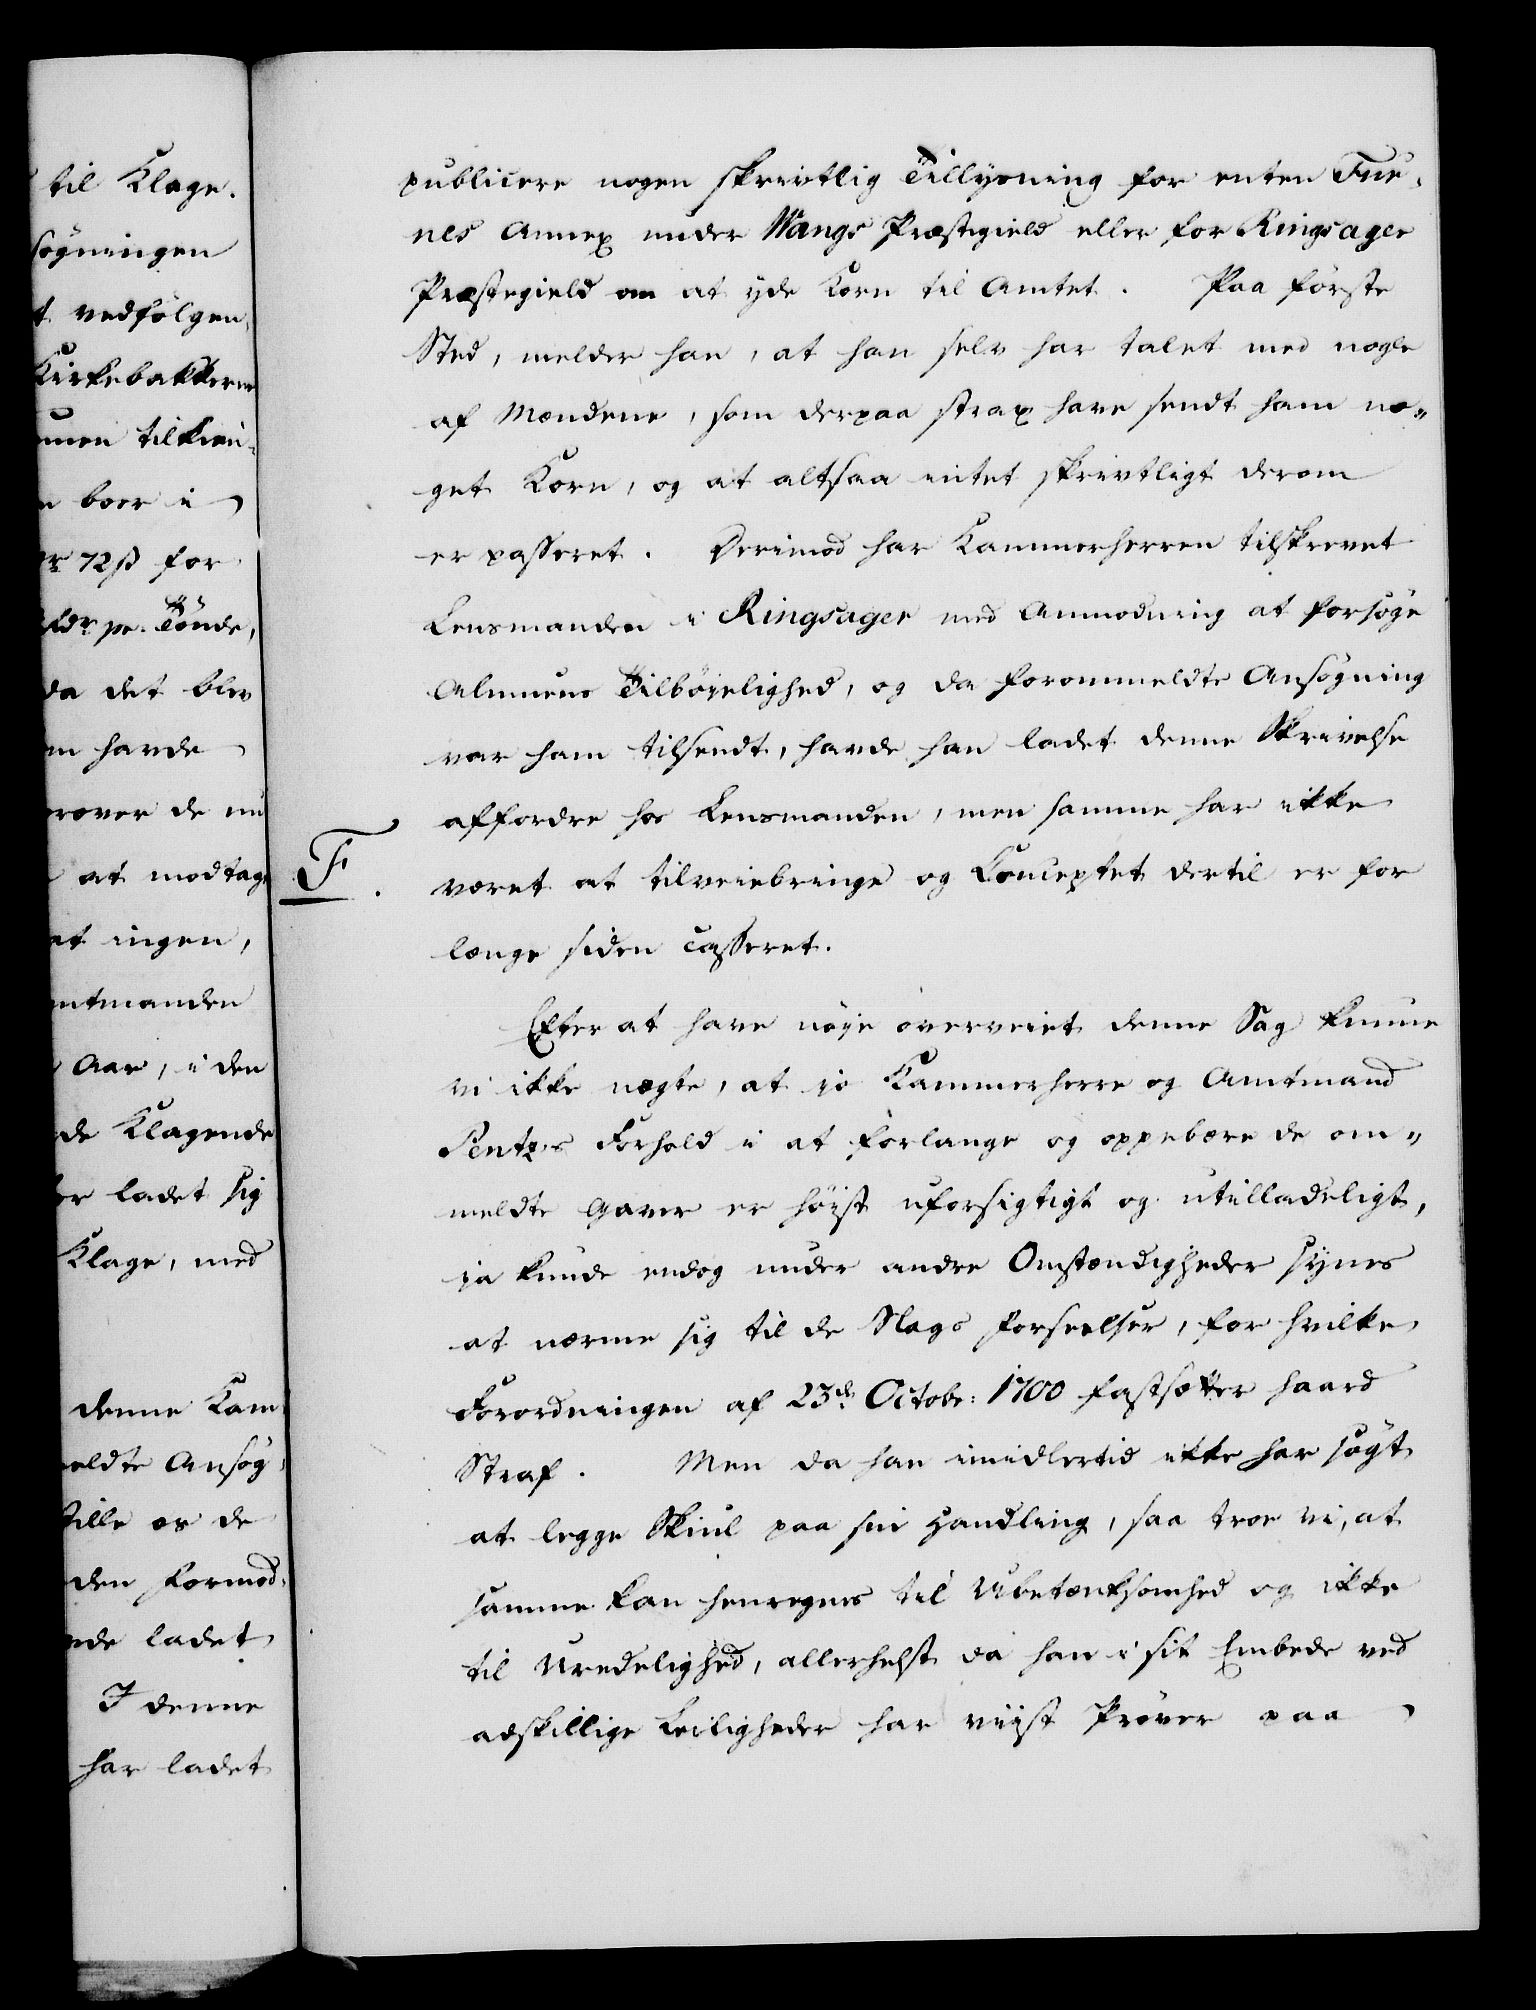 til Klage.
søgningen
t vedfølgen,
Kirkebakkerne
boer i
72 ß for
pr. Tønde,
da det blev
havde
prøver de nu
at modtage
at ingen,
mtmanden
Aar, i den
de Klagende
ladet sig
Klage, med
denne Kam
eldte Ansøg,
stille os de
den formod,
ladet
I denne
har ladet
publicere nogen skrivtlig Tillysning for enten Fur,
nes Annex under Wangs Præstegield eller for Ringsager
Præstegield om at yde Korn til Amtet. Paa første
Sted, melder han, at han selv har talet med nogle
af Mændene, som derpaa strax have sendt ham no„
get Korn, og at altsaa intet skrivtligt derom
er passeret. Derimod har Kammerherren tilskrevet
Lensmanden i Ringsager med Anmodning at forsøge
Almuens Tilbøyelighed, og da forommeldte Ansøgning
var ham tilsendt, havde han ladet denne Skrivelse
affordre hos Lensmanden, men samme har ikke
F.
været at tilveiebringe og Conceptet dertil er for
længe siden casseret.
Efter at have nøye overveiet denne Sag kunne
vi ikke nægte, at jo Kammerherre og Amtmand
Sentz's Forhold i at forlange og oppebære de om„
meldte Gaver er høist uforsigtigt og utilladeligt,
ja kunde endog under andre Omstændigheder synes
at nærme sig til de Slags Forseelser, for hvilke
Forordningen af 23de Octobr: 1700 fastsætter haard
Straf. Men da han imidlertid ikke har søgt
at legge Skiul paa sin Handling, saa troe vi, at
samme kan henregnes til Ubetænksomhed og ikke
til Uredelighed, allerhelst da han i sit Embede ved
adskillige Leiligheder har viist Prøver paa